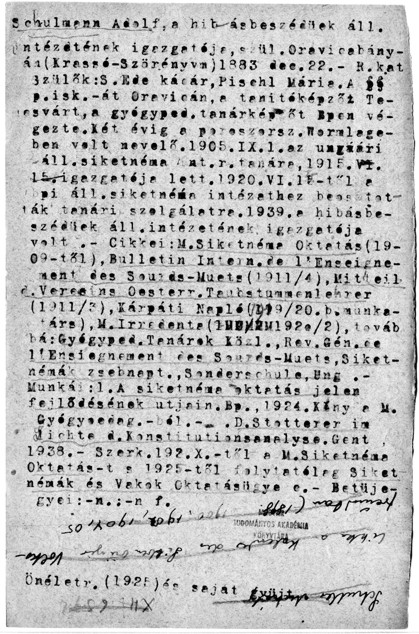 Schulmann Adolf,a hib ásbeszédüek áll.
intézdtének igazgatója,szül.Oravicabány-
án(Krassó-Szörényvm)1883 dec.22.- R.kat
Szülők:S.Ede kádár,Pischl Mária.A
p.isk.-át Oravicán,a tanitóképzőt Te-
esvárt,a gyógyped.tanárképzőt Bpen vé-
gezte.Két évig a poroszorsz.Wormlage-
ben volt nevelő.1905.IX.1.az ungvári
áll.siketnéma int.r.tanára,1915.VI.
15.igazgatója lett.1920.VI.15-től a
bpi áll.siketnéma intézethez beosztot-
ták tanári szolgálatra.1939.a hibásbe-
szédüek áll.intézetének igazgatója
volt .- Cikkei:M.Siketnéma Oktatás(19-
09-től),Bulletin Intern.de l'Enseigne-
ment des Sourds-Muets(1911/4),Mitteil
d.Vereeins Oesterr.Taubstummenlehrer
(1911/3),Kárpáti Napló(1919/20.b.munka-
társ),M.Irredenta(192e/2),továb
bá:Gyógyped.Tanárok Közl.,Rev.Gén.de
l'Ensiegnement des Sourds-Muets,Siket-
némák zsebnapt.,Sonderschule,Ung .-
Munkái:1.A siketnéma oktatás jelen
fejlődésének utjain.Bp.,1924.Klny a M.
Gyógypedag.-ból.- ..D.Stotterer im
Lichte d.Konstitutionsanalyse.Gent
1938.- Szerk.192.X.-től a M.Siketnéma
Oktatás-t s 1925-től folytatólag Siket
némák és Vakok Oktatásügye c.- Betüje-
gyei:-n.;-n f.
(1898, 1904, 05
TUDOMÁNYOS AKADÉMIA
KÖNYVTÁRA
Önéletr.(1928)és saját gyüjt.